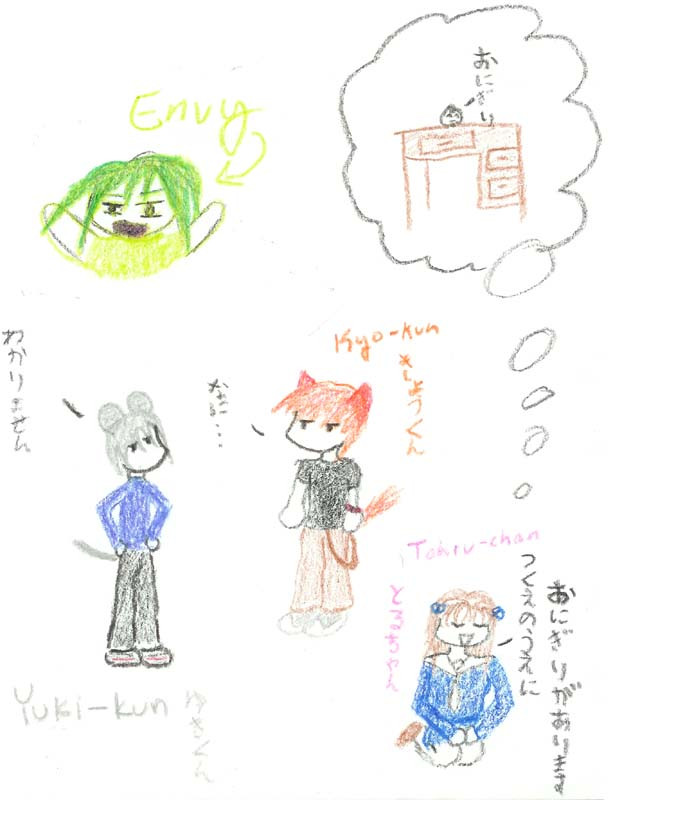 Envy
おにぎり
Kyo-kun
きょうくん
なに…
わかりません
Tohru-chan
とるちゃん
つくえのうえに
おにぎりがあります
Yuki-kun
ゆきくん